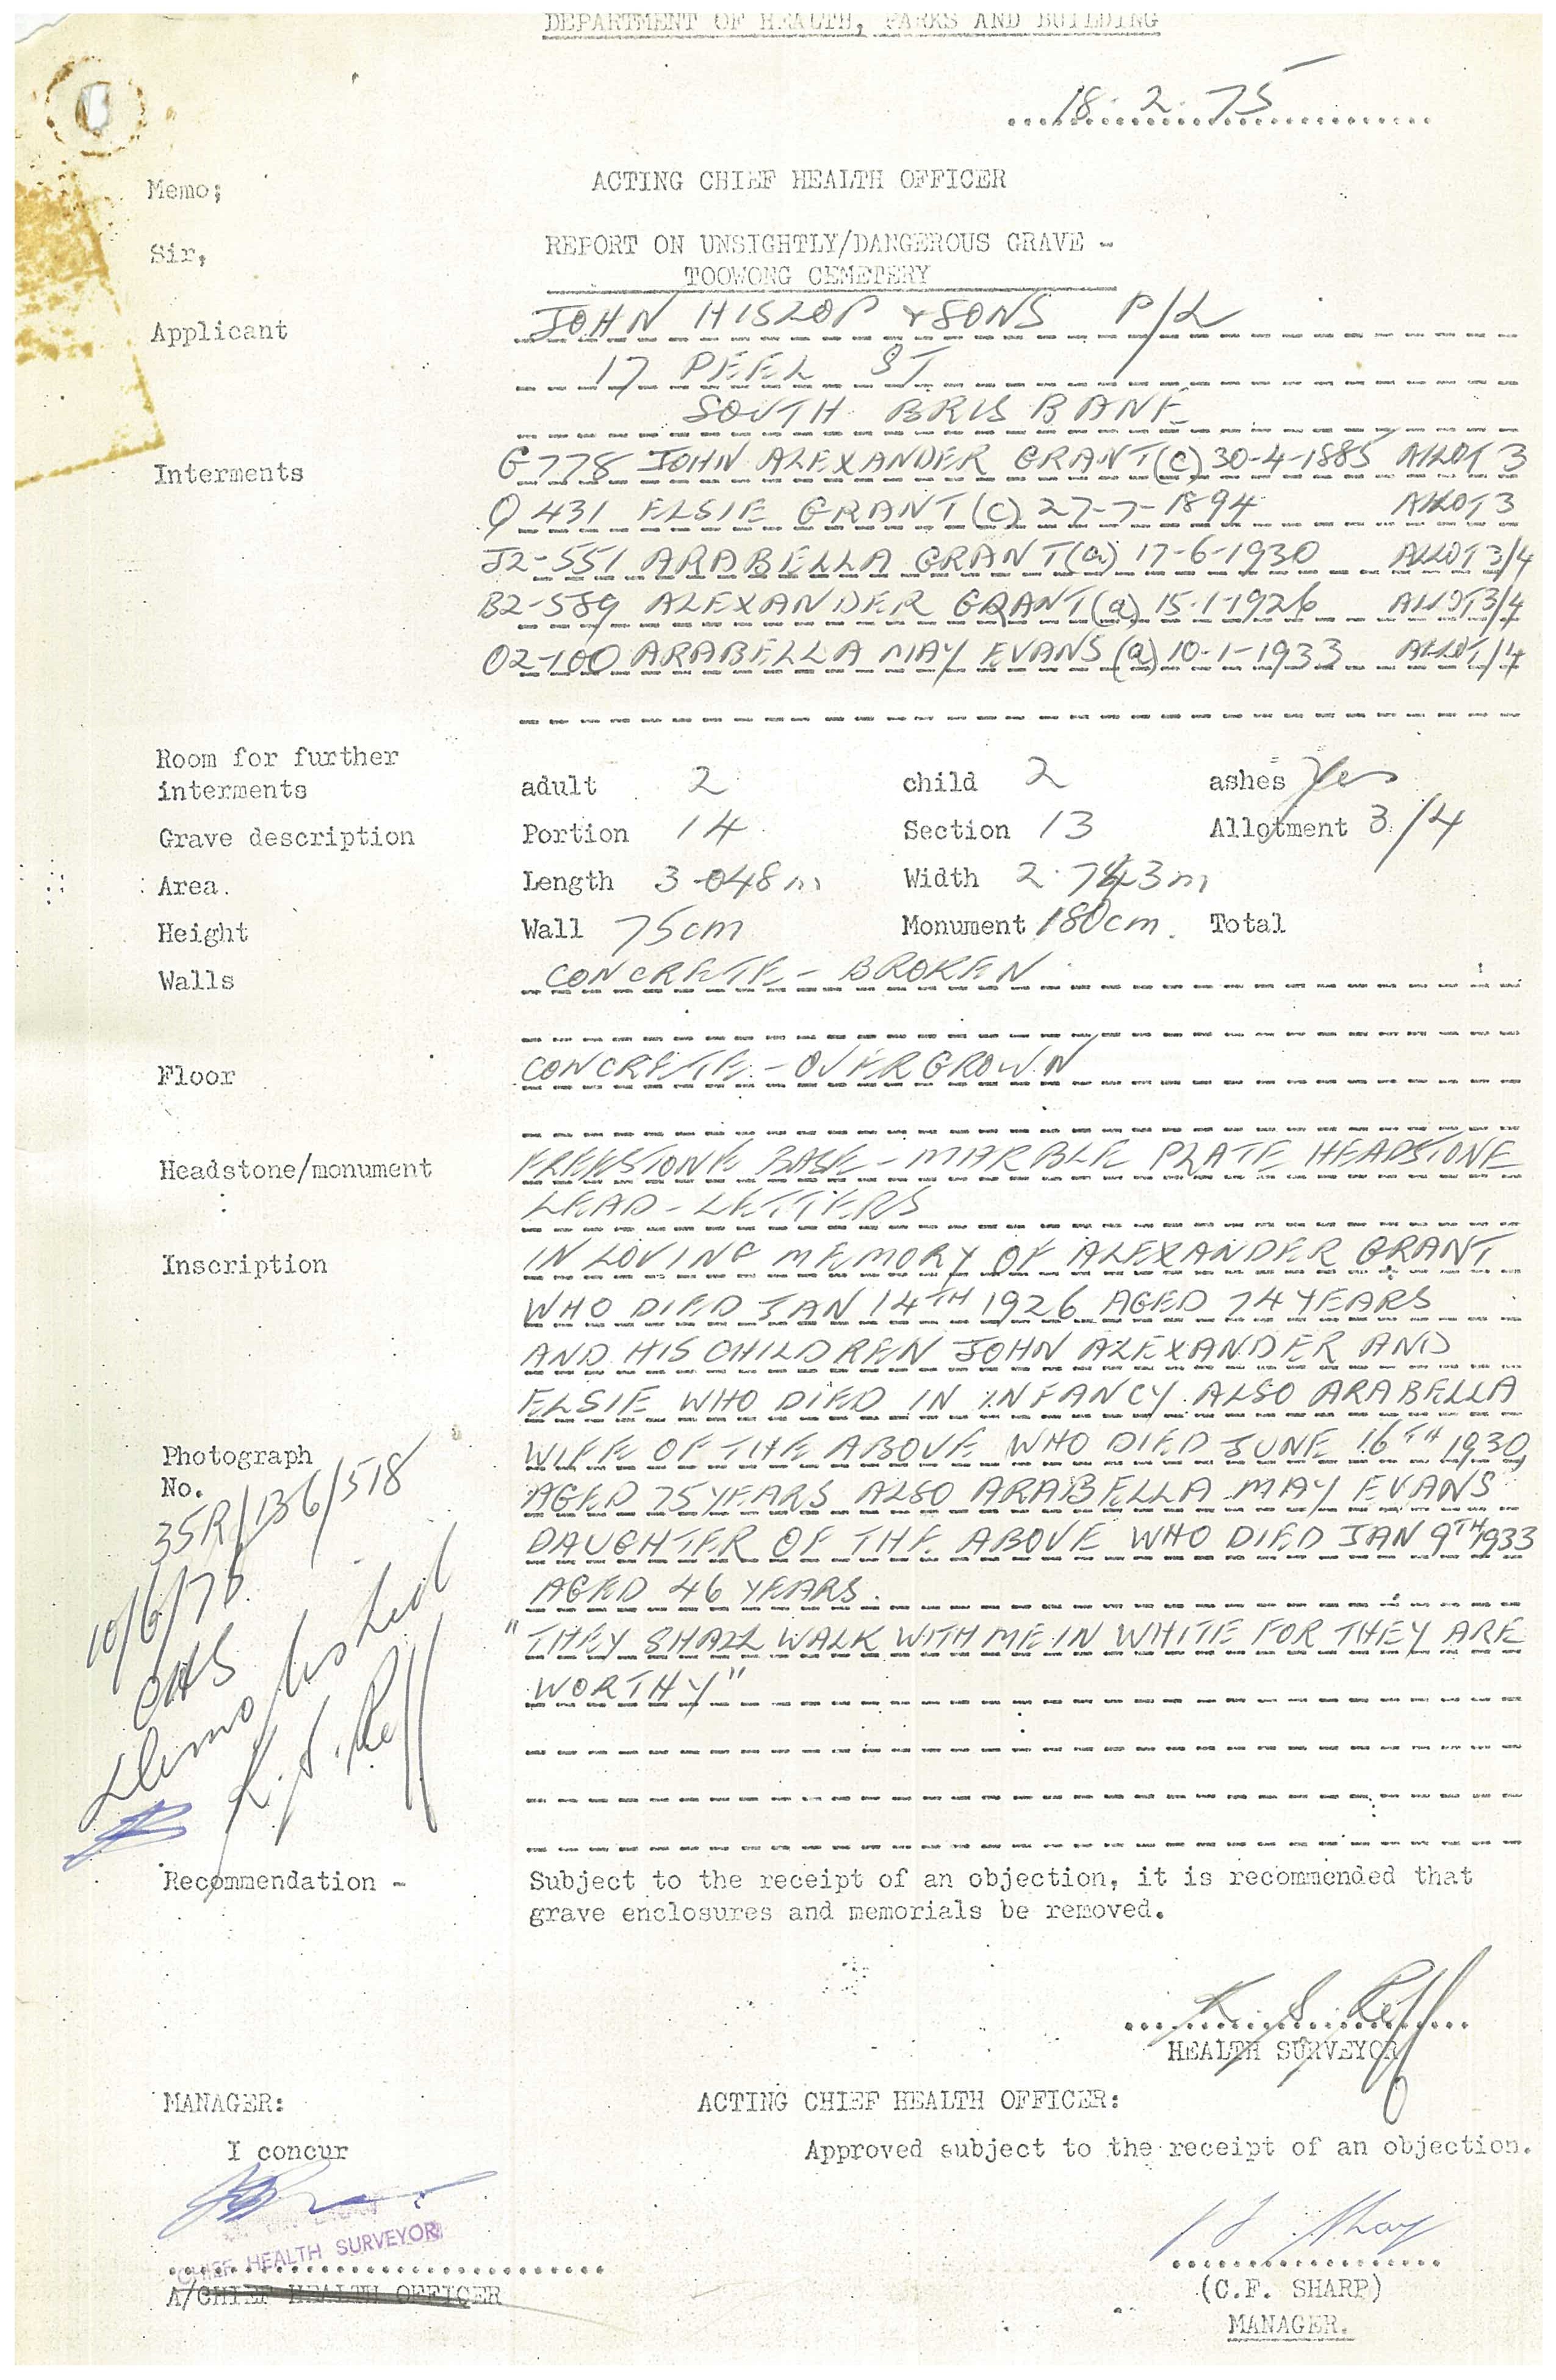 DEPARTMENT OF HEALTH, PARKS AND BUILDING
18. 2. 75
Memo; ACTING CHIEF HEALTH OFFICER
Sir, REPORT ON UNSIGHTLY/DANGEROUS GRAVE -
TOOWONG CEMETERY
Applicant JOHN HISLOP & SONS P/L
17 PEEL ST
SOUTH BRISBANE
Interments G778 JOHN ALEXANDER GRANT (C) 30-4-1885 ALLOT 3
Q 431 ELSIE GRANT (C) 27-7-1894 ALLOT 3
J2-551 ARABELLA GRANT (a) 17-6-1930 ALLOT 3/4
B2-589 ALEXANDER GRANT (a) 15-1-1926 ALLOT 3/4
O2-100 ARABELLA MAY EVANS (a) 10-1-1933 ALLOT /4
Room for further
interments adult 2 child 2 ashes Yes
Grave description Portion 14 Section 13 Allotment 3/4
Area. Length 3.048m Width 2.743m
Height Wall 75cm Monument 180cm. Total
Walls CONCRETE - BROKEN
Floor CONCRETE - OVERGROWN
Headstone/monument FREESTONE BASE - MARBLE PLATE HEADSTONE
LEAD - LETTERS
Inscription IN LOVING MEMORY OF ALEXANDER GRANT
WHO DIED JAN 14TH 1926 AGED 74 YEARS
AND HIS CHILDREN JOHN ALEXANDER AND
ELSIE WHO DIED IN INFANCY ALSO ARABELLA
Photograph WIFE OF THE ABOVE WHO DIED JUNE 16TH 1930,
No. 35R/136/518 AGED 75 YEARS ALSO ARABELLA MAY EVANS
DAUGHTER OF THE ABOVE WHO DIED JAN 9TH 1933
AGED 46 YEARS.
"THEY SHALL WALK WITH ME IN WHITE FOR THEY ARE
WORTHY"
Demolished
K. S. Reff
Recommendation - Subject to the receipt of an objection, it is recommended that
grave enclosures and memorials be removed.
K. S. Reff
HEALTH SURVEYOR
MANAGER: ACTING CHIEF HEALTH OFFICER:
I concur Approved subject to the receipt of an objection.
CHIEF HEALTH SURVEYOR
A/CHIEF HEALTH OFFICER (C.F. SHARP)
MANAGER.